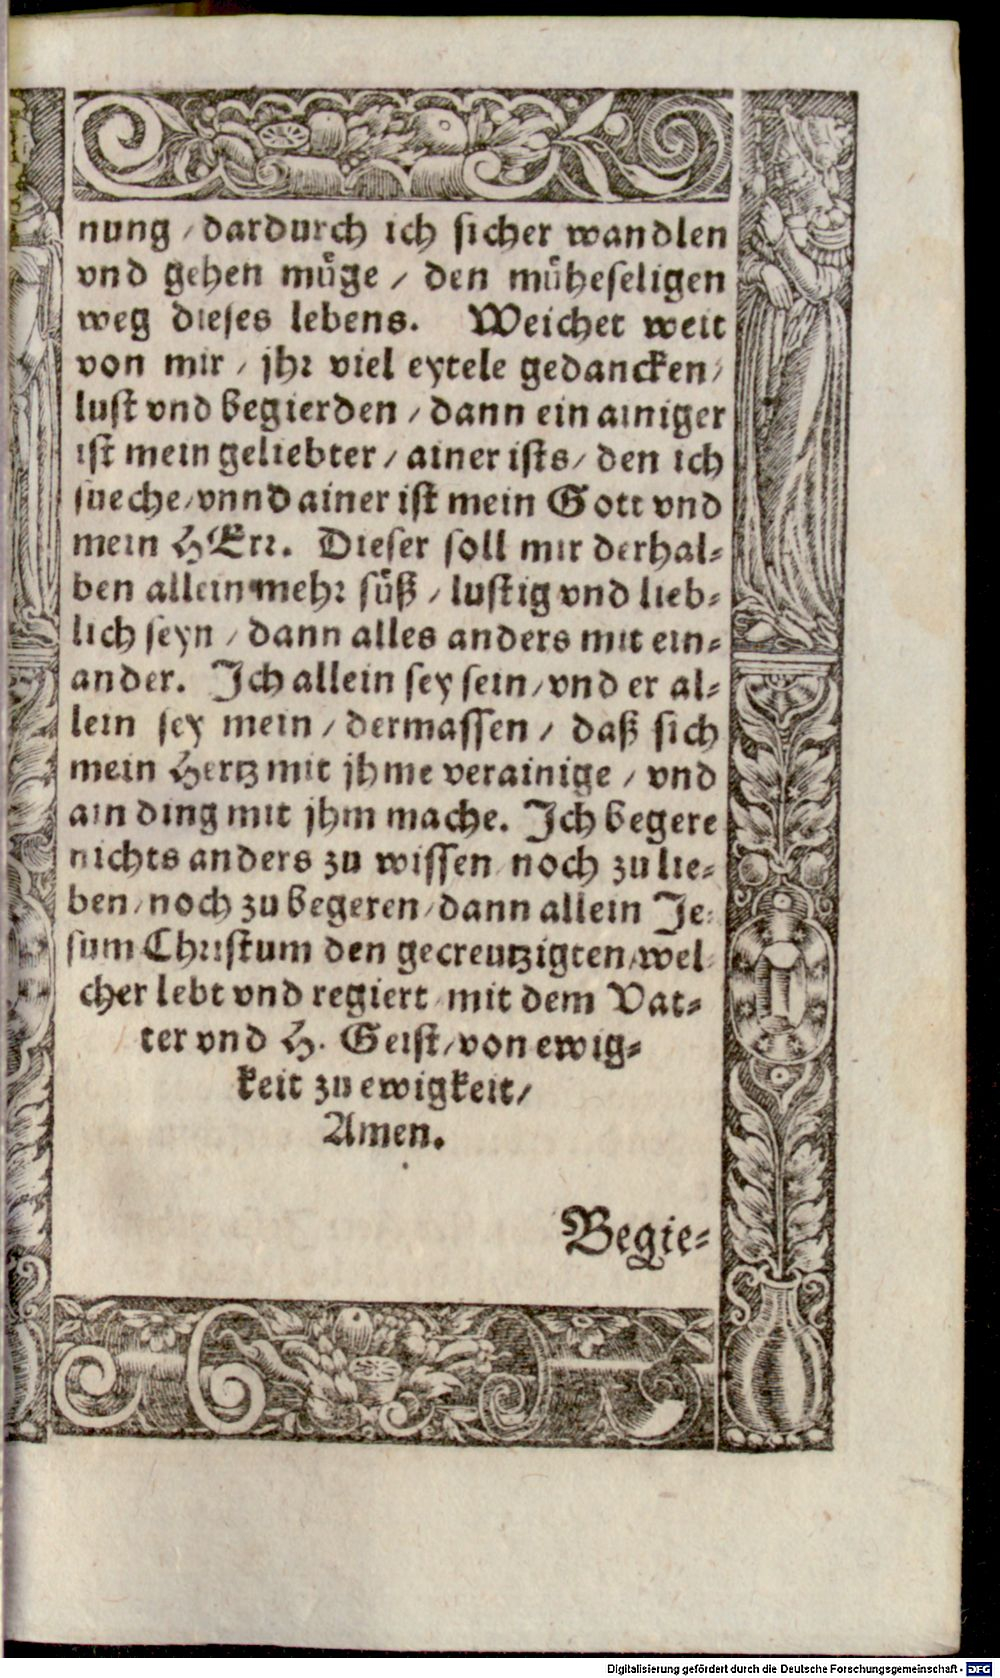 nung / dardurch ich sicher wandlen
vnd gehen muͤge / den muͤheseligen
weg dieses lebens. Weichet weit
von mir / jhr viel eytele gedancken /
lust vnd begierden / dann ein ainiger
ist mein geliebter / ainer ists / den ich
sueche / vnnd ainer ist mein Gott vnd
mein HErr. Dieser soll mir derhal-
ben allein mehr suͤß / lustig vnd lieb-
lich seyn / dann alles anders mit ein-
ander. Ich allein sey sein / vnd er al-
lein sey mein / dermassen / daß sich
mein Hertz mit jhme verainige / vnd
ain ding mit jhm mache. Ich begere
nichts anders zu wissen / noch zu lie-
ben / noch zu begeren / dann allein Je-
sum Christum den gecreutzigten / wel-
cher lebt vnd regiert / mit dem Vat-
ter vnd H. Geist / von ewig-
keit zu ewigkeit /
Amen.
Begie-
Digitalisierung gefördert durch die Deutsche Forschungsgemeinschaft - DFG